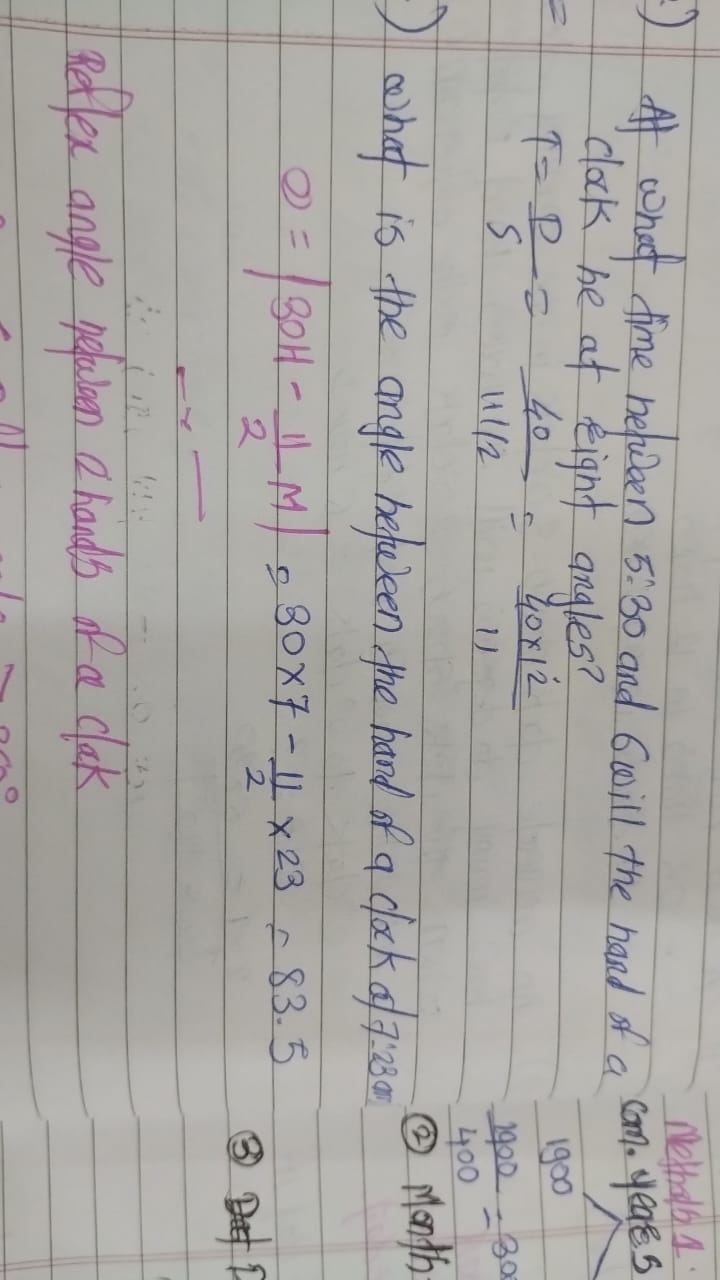 At what time between 5:30 and 6 will the hand of a
clock be at right angles?
T = D/S = 40/11 1/2 = 40×12/11
what is the angle between the hand of a clock at 7:23 am
θ = |30H - 11/2 M| = 30×7 - 11/2 × 23 = 83.5
Reflex angle between 2 hands of a clok
Methods 1.
com. years
1900
1900/400 = 30
② Month
③